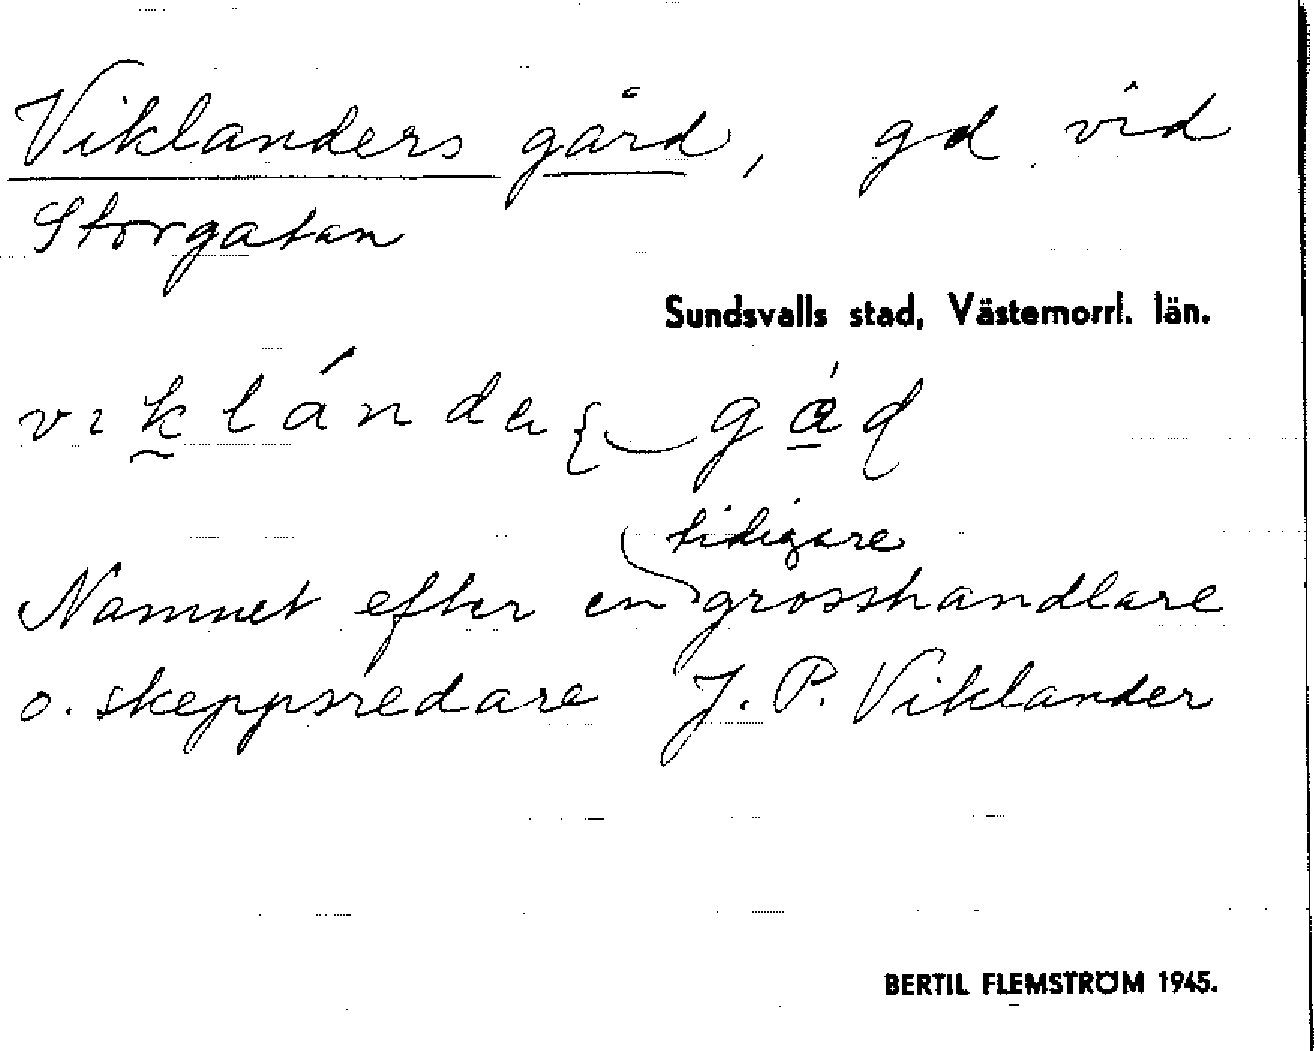 Viklanders gård, gd vid
Storgatan
Sundsvalls stad, Västernorrl. län.
tidigare
Namnet efter en grosshandlare
o. skeppsredare J. P. Viklander
BERTIL FLEMSTRÖM 1945.